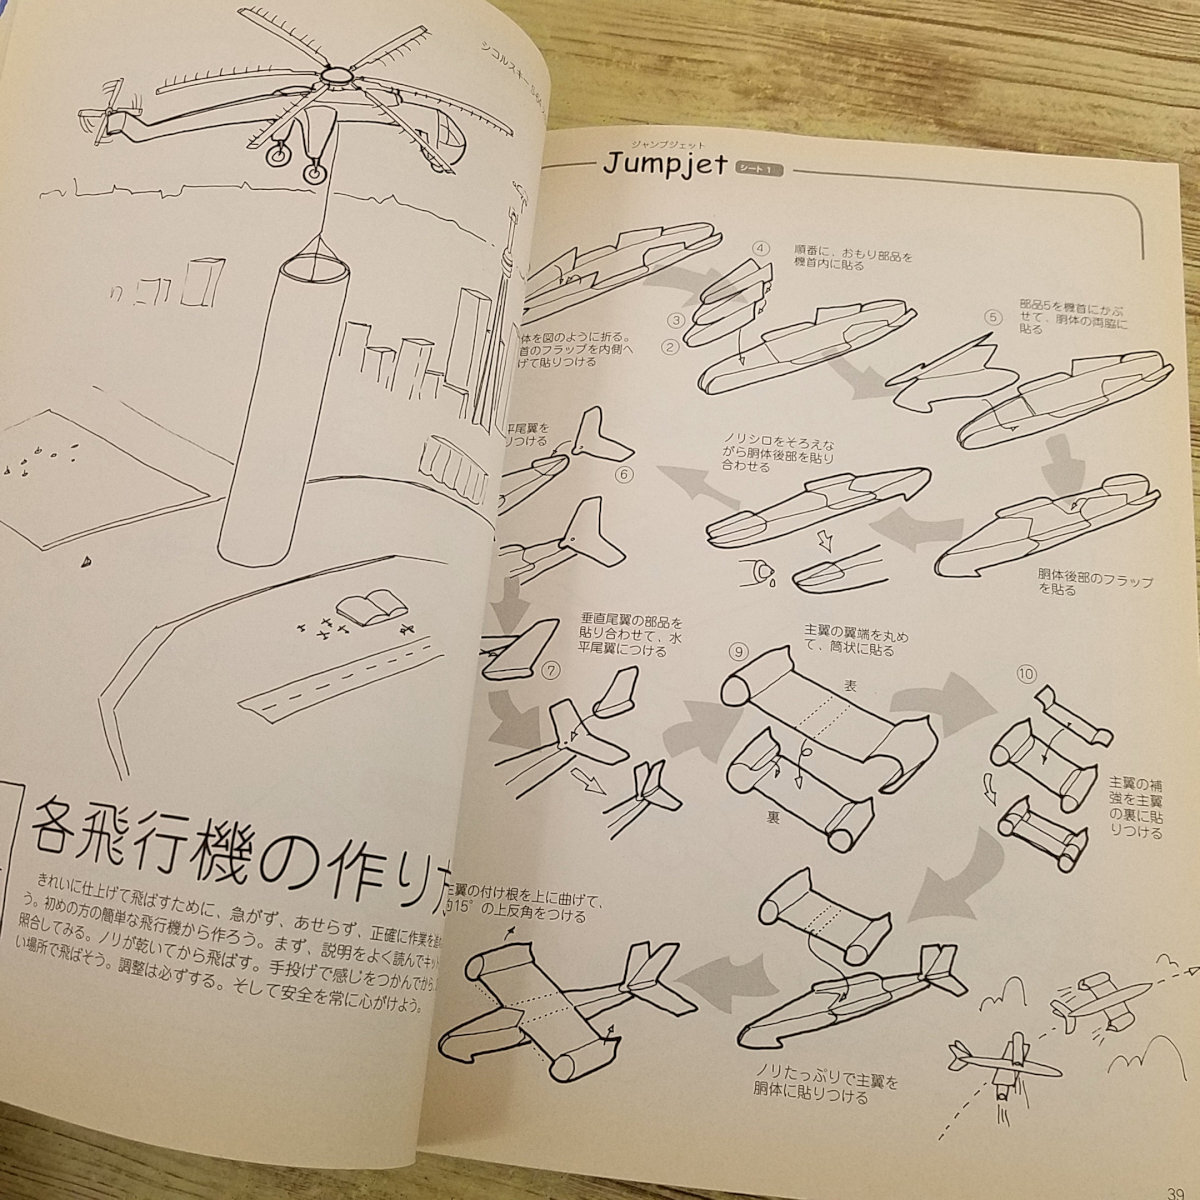 シコルスキー S-64
各飛行機の作り
きれいに仕上げて飛ばすために、急がず、あせらず、正確に作業を
う。初めの方の簡単な飛行機から作ろう。まず、説明をよく読んでキッ
照合してみる。ノリが乾いてから飛ばす。手投げで感じをつかんでから、
い場所で飛ばそう。調整は必ずする。そして安全を常に心がけよう。
ジャンプジェット
Jumpjet シート1
体を図のように折る。
首のフラップを内側へ
げて貼りつける
②
③
④
順番に、おもり部品を
機首内に貼る
⑤
部品5を機首にかぶ
せて、胴体の両脇に
貼る
胴体後部のフラップ
を貼る
ノリシロをそろえな
がら胴体後部を貼り
合わせる
平尾翼を
りつける
⑥
垂直尾翼の部品を
貼り合わせて、水
平尾翼につける
⑦
主翼の翼端を丸め
て、筒状に貼る
⑨
表
裏
⑩
主翼の補
強を主翼
の裏に貼
りつける
ノリたっぷりで主翼を
胴体に貼りつける
主翼の付け根を上に曲げて、
約15°の上反角をつける
39